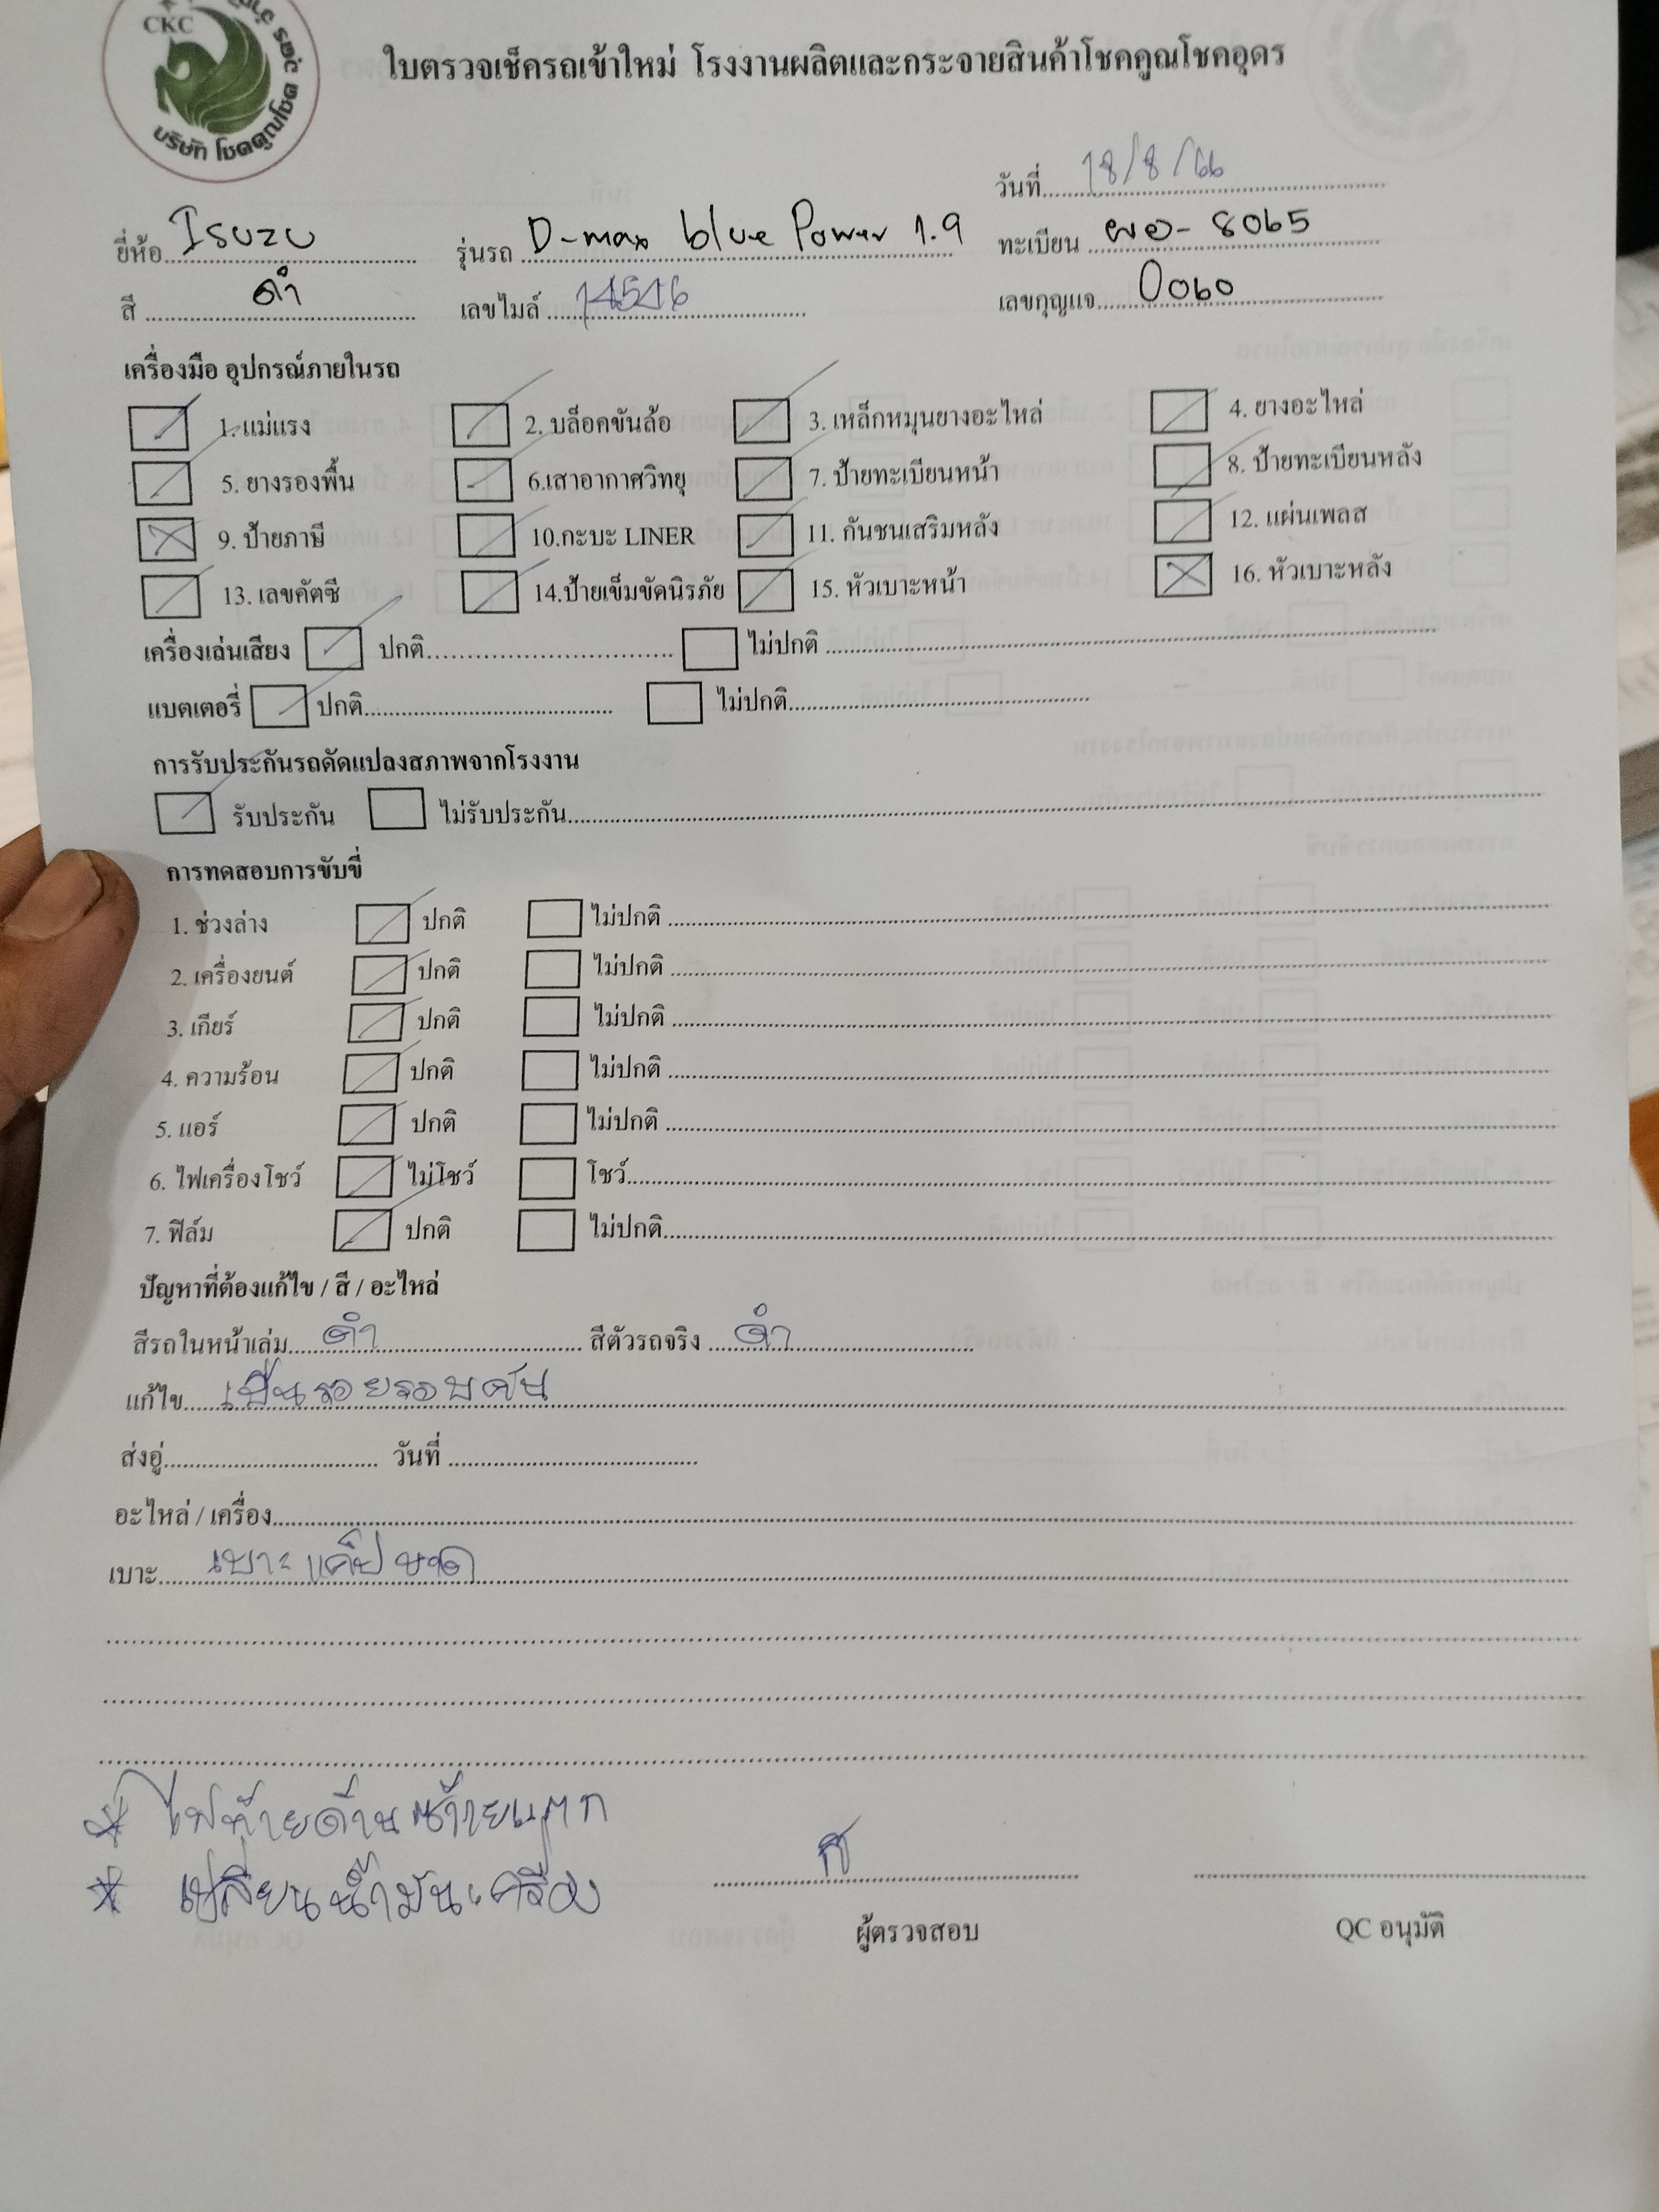 CKC
บริษัท โชคคูณโชค
ใบตรวจเช็ครถเข้าใหม่ โรงงานผลิตและกระจายสินค้าโชคคูณโชคอุดร
วันที่ 18/8/66
ยี่ห้อ Isuzu รุ่นรถ D-max blue Power 1.9 ทะเบียน ผอ-8065
สี ดำ เลขไมล์ 14546 เลขกุญแจ 0060
เครื่องมือ อุปกรณ์ภายในรถ
1.แม่แรง 2. บล็อคขันล้อ 3. เหล็กหมุนยางอะไหล่ 4. ยางอะไหล่
5. ยางรองพื้น 6.เสาอากาศวิทยุ 7. ป้ายทะเบียนหน้า 8. ป้ายทะเบียนหลัง
9. ป้ายภาษี 10.กะบะ LINER 11. กันชนเสริมหลัง 12. แผ่นเพลส
13. เลขคัตซี 14.ป้ายเข็มขัดนิรภัย 15. หัวเบาะหน้า 16. หัวเบาะหลัง
เครื่องเล่นเสียง ปกติ ไม่ปกติ
แบตเตอรี่ ปกติ ไม่ปกติ
การรับประกันรถดัดแปลงสภาพจากโรงงาน
รับประกัน ไม่รับประกัน
การทดสอบการขับขี่
1. ช่วงล่าง ปกติ ไม่ปกติ
2. เครื่องยนต์ ปกติ ไม่ปกติ
3. เกียร์ ปกติ ไม่ปกติ
4. ความร้อน ปกติ ไม่ปกติ
5. แอร์ ปกติ ไม่ปกติ
6. ไฟเครื่องโชว์ ไม่โชว์ โชว์
7. ฟิล์ม ปกติ ไม่ปกติ
ปัญหาที่ต้องแก้ไข / สี / อะไหล่
สีรถในหน้าเล่ม ดำ สีตัวรถจริง ดำ
แก้ไข เป็นรอยรอบคัน
ส่งอู่ วันที่
อะไหล่ / เครื่อง
เบาะ เบาะแค็ปขาด
* ไฟท้ายด้านซ้ายแตก
* เปลี่ยนน้ำมันเครื่อง
ผู้ตรวจสอบ QC อนุมัติ